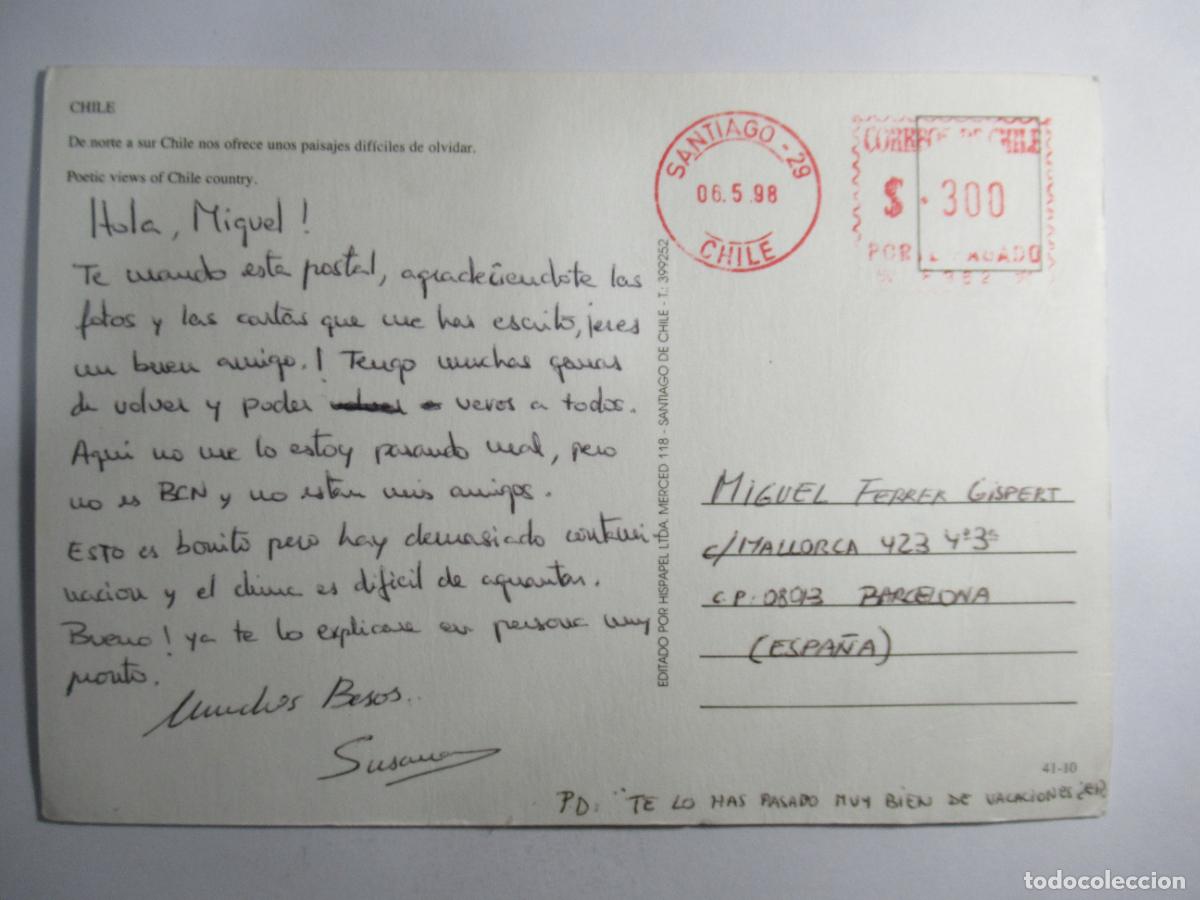 CHILE
De norte a sur Chile nos ofrece unos paisajes difíciles de olvidar.
Poetic views of Chile country.
Hola, Miguel!
Te mando esta postal, agradeciendote las
fotos y las cartas que me has escrito, ¡eres
un buen amigo.! Tengo muchas ganas
de volver y poder veros a todos.
Aquí no me lo estoy pasando mal, pero
no es BCN y no estan mis amigos.
ESTO es bonito pero hay demasiado contami-
nacion y el clima es dificil de aguantar.
Bueno! ya te lo explicare en persona muy
pronto.
Muchos Besos..
Susana
PD: "TE LO HAS PASADO MUY BIEN DE VACACIONES ¿EH?
EDITADO POR HISPAPEL LTDA. MERCED 118 - SANTIAGO DE CHILE - T.: 399252
SANTIAGO - 29
06.5.98
CHILE
CORREOS DE CHILE
$ · 300
PAGADO
MIGUEL FERRER GISPERT
c/MALLORCA 423 4º3ª
C.P: 08013 BARCELONA
(ESPAÑA)
41-10
todocoleccion